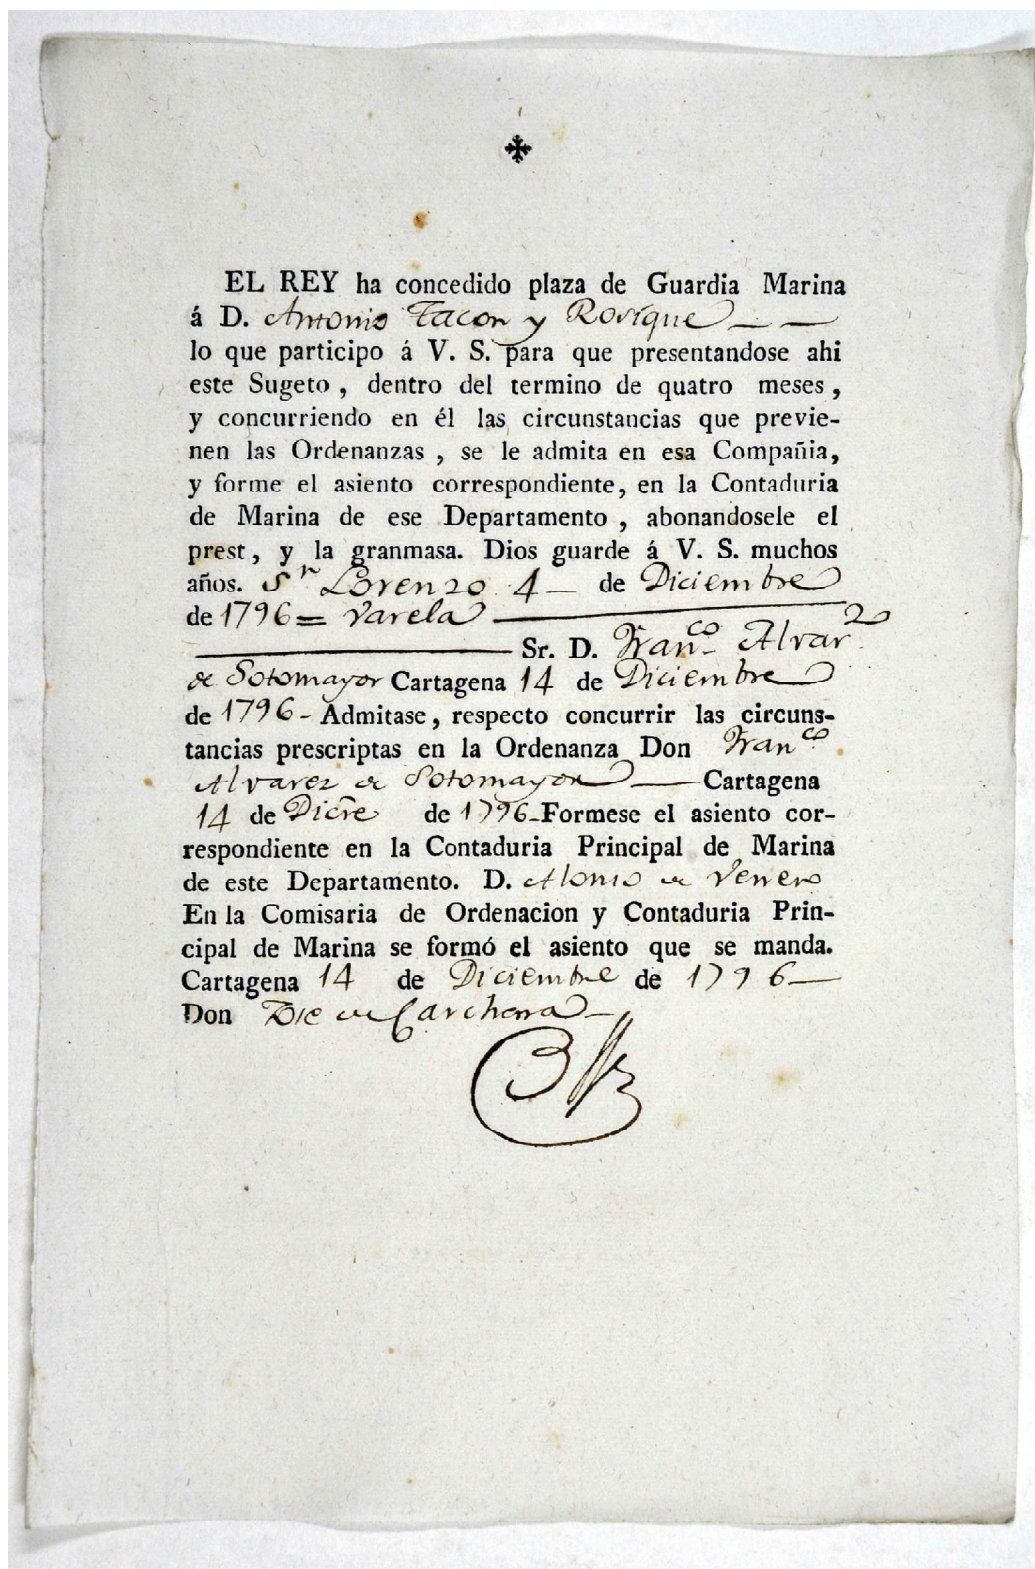 EL REY ha concedido plaza de Guardia Marina
á D. Antonio Tacon y Rosique
lo que participo á V. S. para que presentandose ahi
este Sugeto, dentro del termino de quatro meses,
y concurriendo en él las circunstancias que previe-
nen las Ordenanzas, se le admita en esa Compañia,
y forme el asiento correspondiente, en la Contaduria
de Marina de ese Departamento, abonandosele el
prest, y la granmasa. Dios guarde á V. S. muchos
años. Sn Lorenzo 4 — de Diciembre
de 1796 = Varela
Sr. D. Franco Alvarz
de Sotomayor Cartagena 14 de Diciembre
de 1796 - Admitase, respecto concurrir las circuns-
tancias prescriptas en la Ordenanza Don Franco
Alvarez de Sotomayor — Cartagena
14 de Dicre de 1796 - Formese el asiento cor-
respondiente en la Contaduria Principal de Marina
de este Departamento. D. Alonso de Verrero
En la Comisaria de Ordenacion y Contaduria Prin-
cipal de Marina se formó el asiento que se manda.
Cartagena 14 de Diciembre de 1796 —
Don de